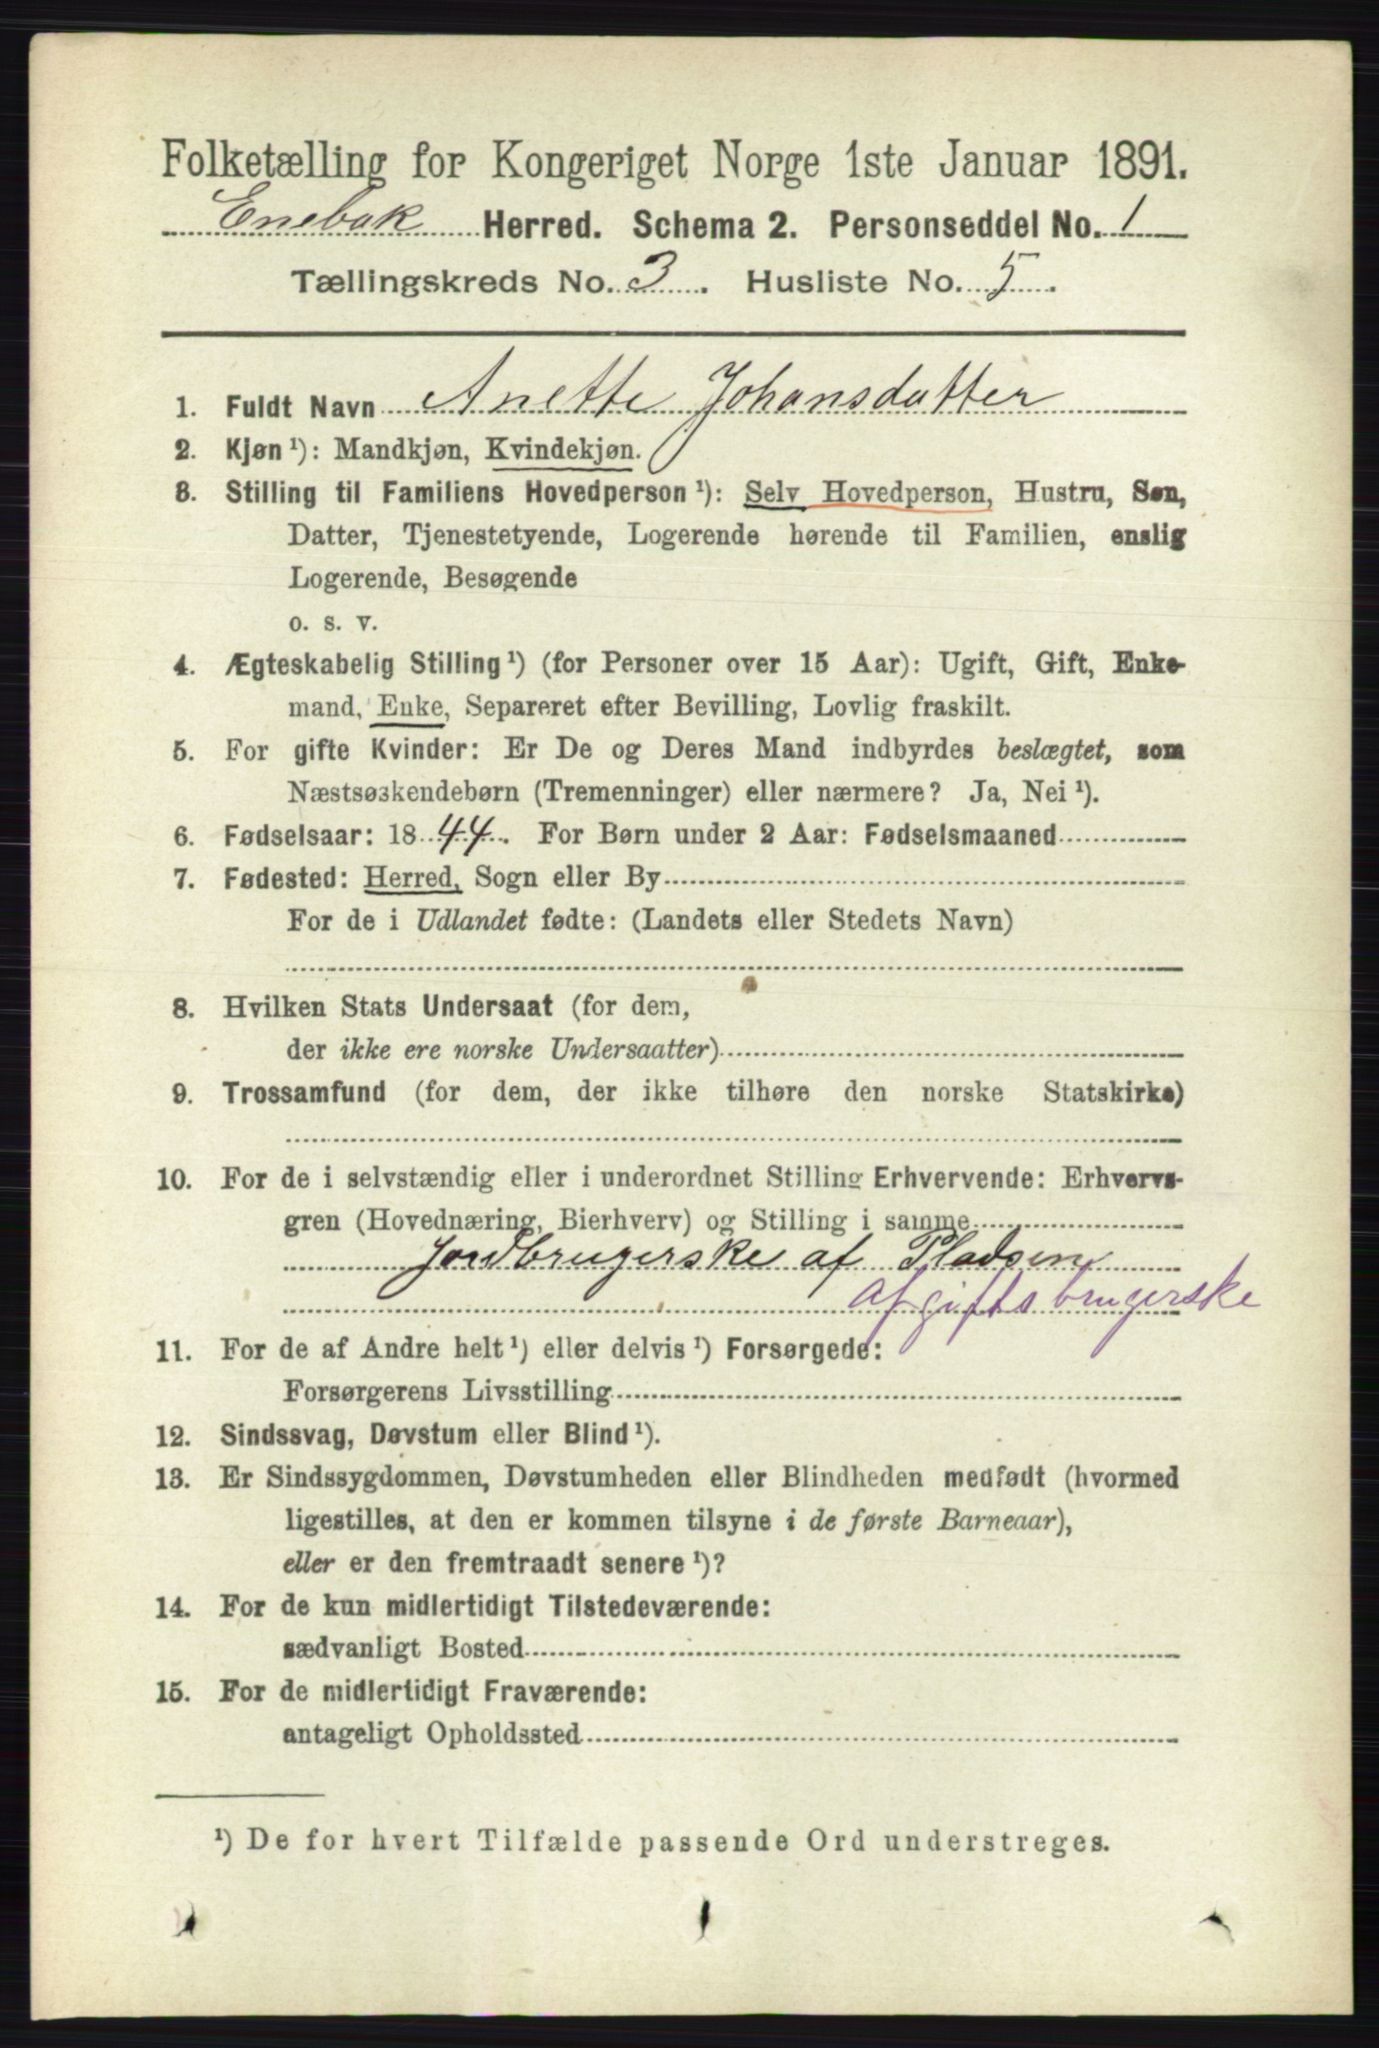 Folketælling for Kongeriget Norge 1ste Januar 1891.
Enebak Herred. Schema 2. Personseddel No. 1
Tællingskreds No. 3. Husliste No. 5.
1. Fuldt Navn Anette Johansdatter
2. Kjøn ¹): Mandkjøn, Kvindekjøn.
3. Stilling til Familiens Hovedperson ¹): Selv Hovedperson, Hustru, Søn,
Datter, Tjenestetyende, Logerende hørende til Familien, enslig
Logerende, Besøgende
o. s. v.
4. Ægteskabelig Stilling ¹) (for Personer over 15 Aar): Ugift, Gift, Enke-
mand, Enke, Separeret efter Bevilling, Lovlig fraskilt.
5. For gifte Kvinder: Er De og Deres Mand indbyrdes beslægtet, som
Næstsøskendebørn (Tremenninger) eller nærmere? Ja, Nei ¹).
6. Fødselsaar: 1844. For Børn under 2 Aar: Fødselsmaaned
7. Fødested: Herred, Sogn eller By
For de i Udlandet fødte: (Landets eller Stedets Navn)
8. Hvilken Stats Undersaat (for dem,
der ikke ere norske Undersaatter)
9. Trossamfund (for dem, der ikke tilhøre den norske Statskirke)
10. For de i selvstændig eller i underordnet Stilling Erhvervende: Erhvervs-
gren (Hovednæring, Bierhverv) og Stilling i samme
Jordbrugerske af Pladsen
afgiftsbrugerske
11. For de af Andre helt ¹) eller delvis ¹) Forsørgede:
Forsørgerens Livsstilling
12. Sindssvag, Døvstum eller Blind ¹).
13. Er Sindssygdommen, Døvstumheden eller Blindheden medfødt (hvormed
ligestilles, at den er kommen tilsyne i de første Barneaar),
eller er den fremtraadt senere ¹)?
14. For de kun midlertidigt Tilstedeværende:
sædvanligt Bosted
15. For de midlertidigt Fraværende:
antageligt Opholdssted
¹) De for hvert Tilfælde passende Ord understreges.